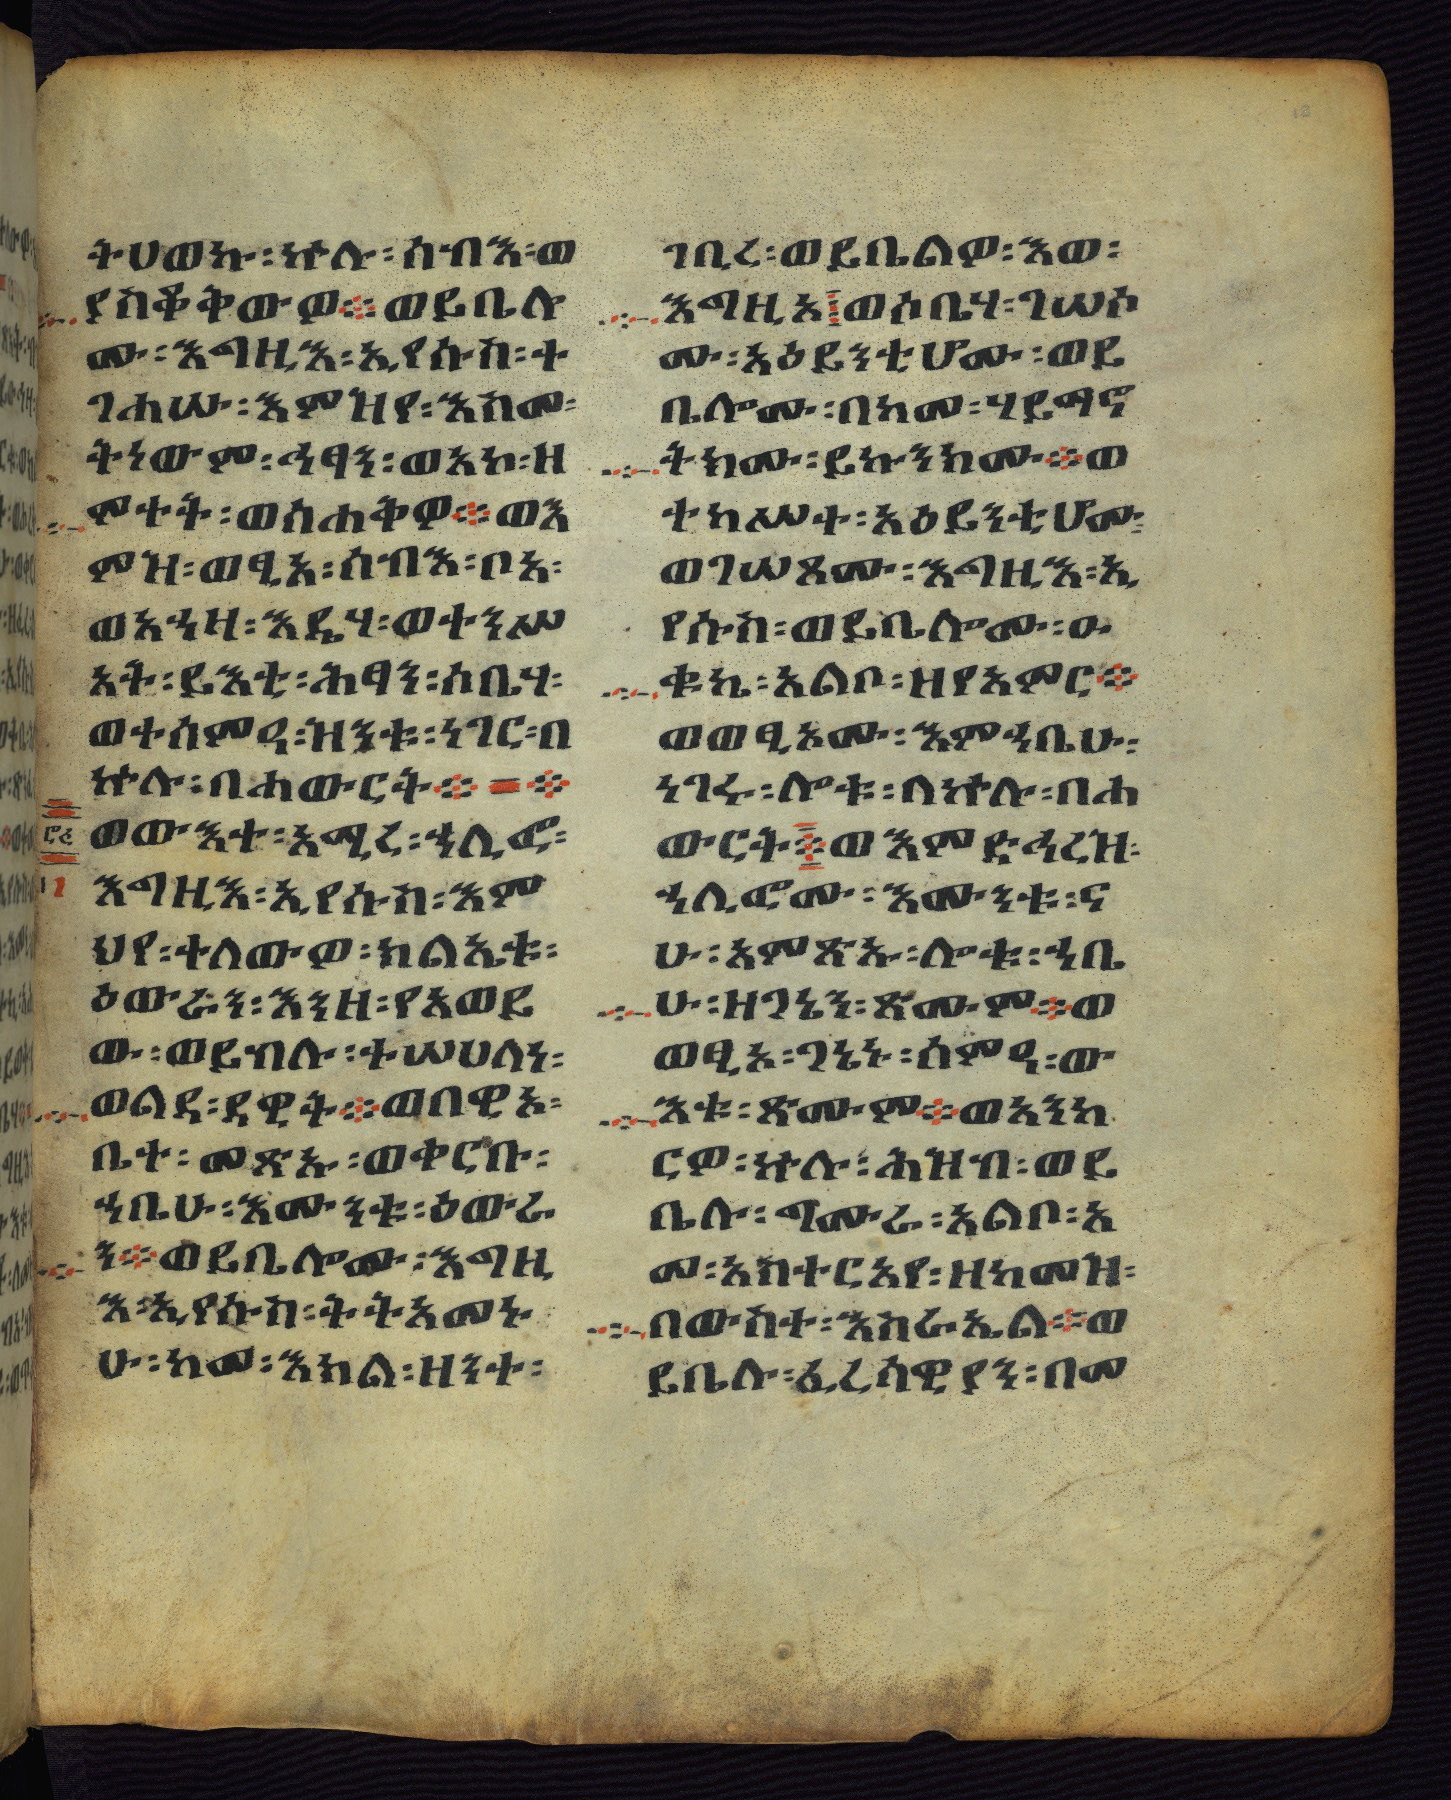 ትህወኩ፡ኵሉ፡ሰብእ፡ወ
የስቆቅውዎ፨ወይቤሎ
ሙ፡እግዚእ፡ኢየሱስ፡ተ
ገሐሡ፡እምዝየ፡እስመ፡
ትነውም፡ሕፃን፡ወአኮ፡ዘ
ሞተት፡ወሰሐቅዎ፨ወእ
ምዝ፡ወፂኦ፡ሰብእ፡ቦአ፡
ወአኀዛ፡እዴሃ፡ወተንሥ
አት፡ይእቲ፡ሕፃን፡ሶቤሃ፡
ወተሰምዐ፡ዝንቱ፡ነገር፡በ
ኵሉ፡በሐውርት፨ = ፨
ወውእተ፡አሚረ፡ኀሊፎ፡
እግዚእ፡ኢየሱስ፡እም
ህየ፡ተለውዎ፡ክልኤቱ፡
ዕውራን፡እንዘ፡የአወይ
ው፡ወይብሉ፡ተሣሀለነ፡
ወልደ፡ዳዊት፨ወበዊኦ፡
ቤተ፡መጽኡ፡ወቀርቡ፡
ኀቤሁ፡እሙንቱ፡ዕውራ
ን፨ወይቤሎሙ፡እግዚ
እ፡ኢየሱስ፡ትትአመኑ
ሁ፡ከመ፡እክል፡ዘንተ፡
ገቢረ፡ወይቤልዎ፡እወ፡
እግዚኦ፤ወሶቤሃ፡ገሠሶ
ሙ፡አዕይንቲሆሙ፡ወይ
ቤሎሙ፡በከመ፡ሃይማኖ
ትክሙ፡ይኩንክሙ፨ወ
ተከሥተ፡አዕይንቲሆሙ፡
ወገሠጾሙ፡እግዚእ፡ኢ
የሱስ፡ወይቤሎሙ፡ዑ
ቁኬ፡አልቦ፡ዘየአምር፨
ወወፂኦሙ፡እምኀቤሁ፡
ነገሩ፡ሎቱ፡በኵሉ፡በሐ
ውርት፨ወእምድኅረዝ፡
ኀሊፎሙ፡እሙንቱ፡ና
ሁ፡አምጽኡ፡ሎቱ፡ኀቤ
ሁ፡ዘጋኔን፡ጽሙም፨ወ
ወፂኦ፡ጋኔኑ፡ሰምዐ፡ው
እቱ፡ጽሙም፨ወአንከ
ርዎ፡ኵሉ፡ሕዝብ፡ወይ
ቤሉ፡ግሙራ፡አልቦ፡አ
መ፡አስተርአየ፡ዘከመዝ፡
በውስተ፡እስራኤል፨ወ
ይቤሉ፡ፈሪሳዊያን፡በመ